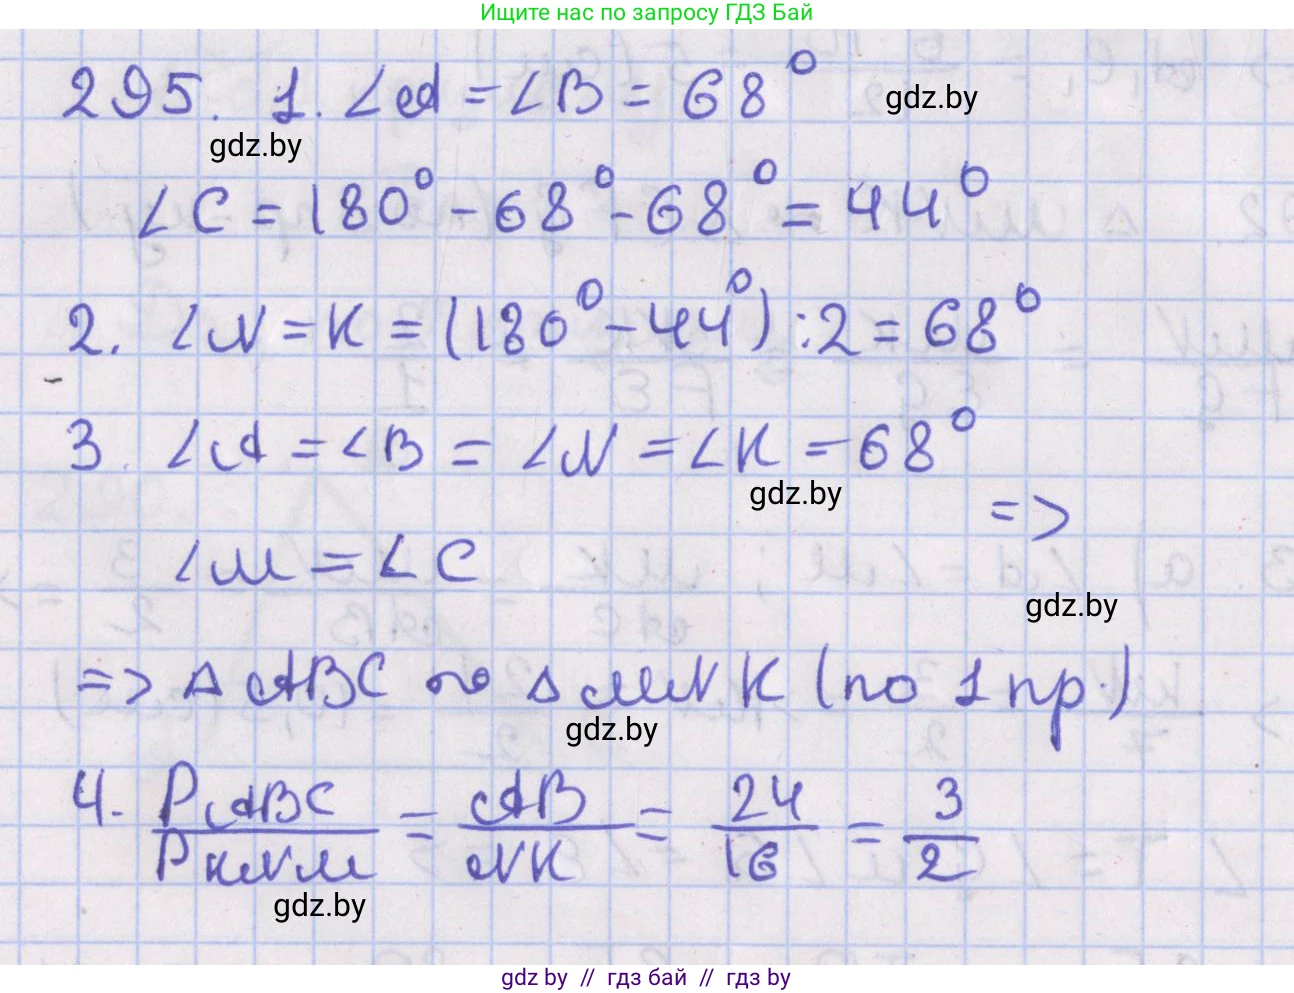 Ищите нас по запросу ГДЗ Бай
295. 1. ∠A = ∠B = 68°
gdz.by
gdz.by
∠C = 180° - 68° - 68° = 44°
2. ∠N = K = (180° - 44°) : 2 = 68°
3. ∠A = ∠B = ∠N = ∠K = 68°
gdz.by
=>
∠M = ∠C
gdz.by
=> Δ ABC ~ Δ MNK (по 1 пр.)
gdz.by
4. P ABC / P KNM = AB / NK = 24 / 16 = 3 / 2
gdz.by
gdz by // гдз бай // гдз by